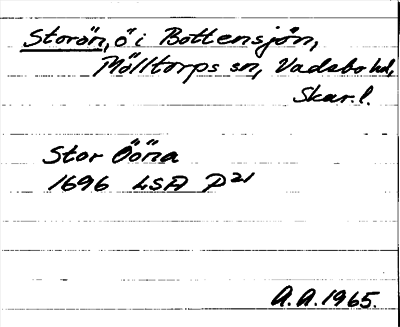 Storön, ö i Bottensjön,
Mölltorps sn, Vadsbo hd,
Skar. l.
Stor Ööna
1696 LSA P21
A.A. 1965.